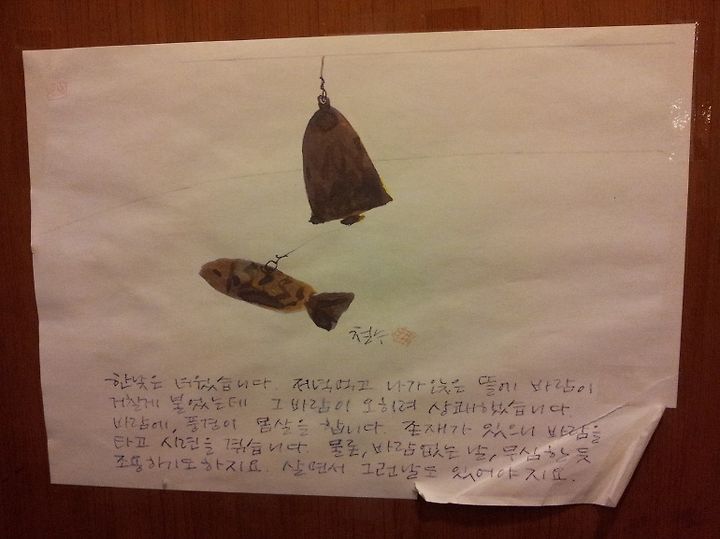 철수
한낮은 더웠습니다. 저녁먹고 나가앉은 뜰에 바람이
거칠게 불었는데 그 바람이 오히려 상쾌했습니다.
바람에, 풍경이 몸살을 합니다. 존재가 있으니 바람을
타고 시련을 겪습니다. 물론, 바람없는 날, 무심한 듯
조용하기도 하지요. 살면서 그런날도 있어야지요.